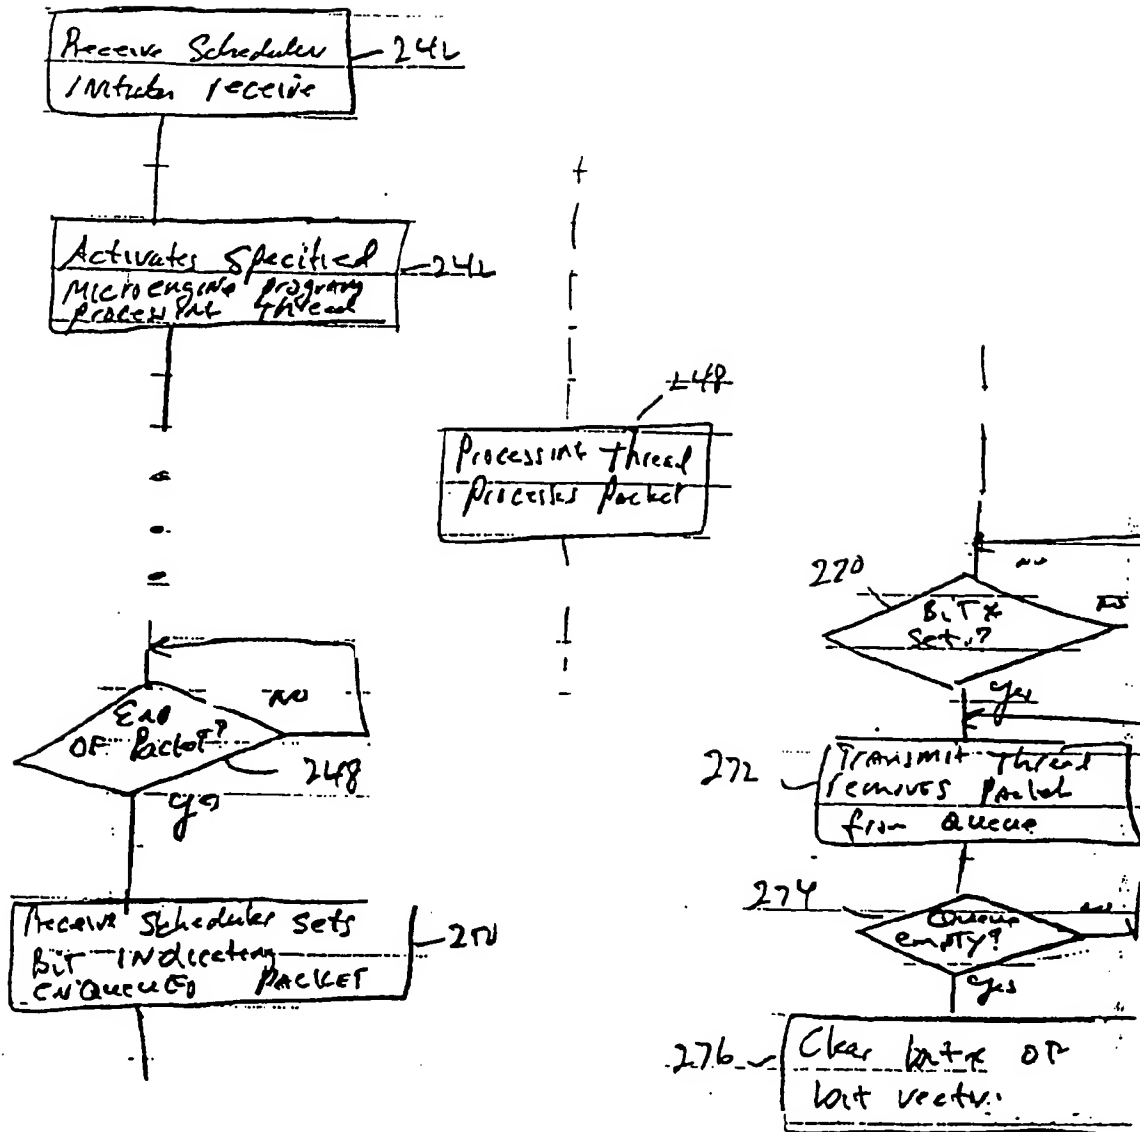 Receive Scheduler
Initiates receive
242
Activates Specified
Microengine program
processing thread
242
248
Processing thread
Processes Packet
END
OF Packet?
NO
248
yes
Receive Scheduler Sets
Bit INdicating
ENQUEUED PACKET
250
270
BiTx
Set?
NO
NO
yes
272
TRANSMIT thread
removes Packet
from Queue
274
Queue
empty?
NO
yes
276
Clear bit x OF
bit vector